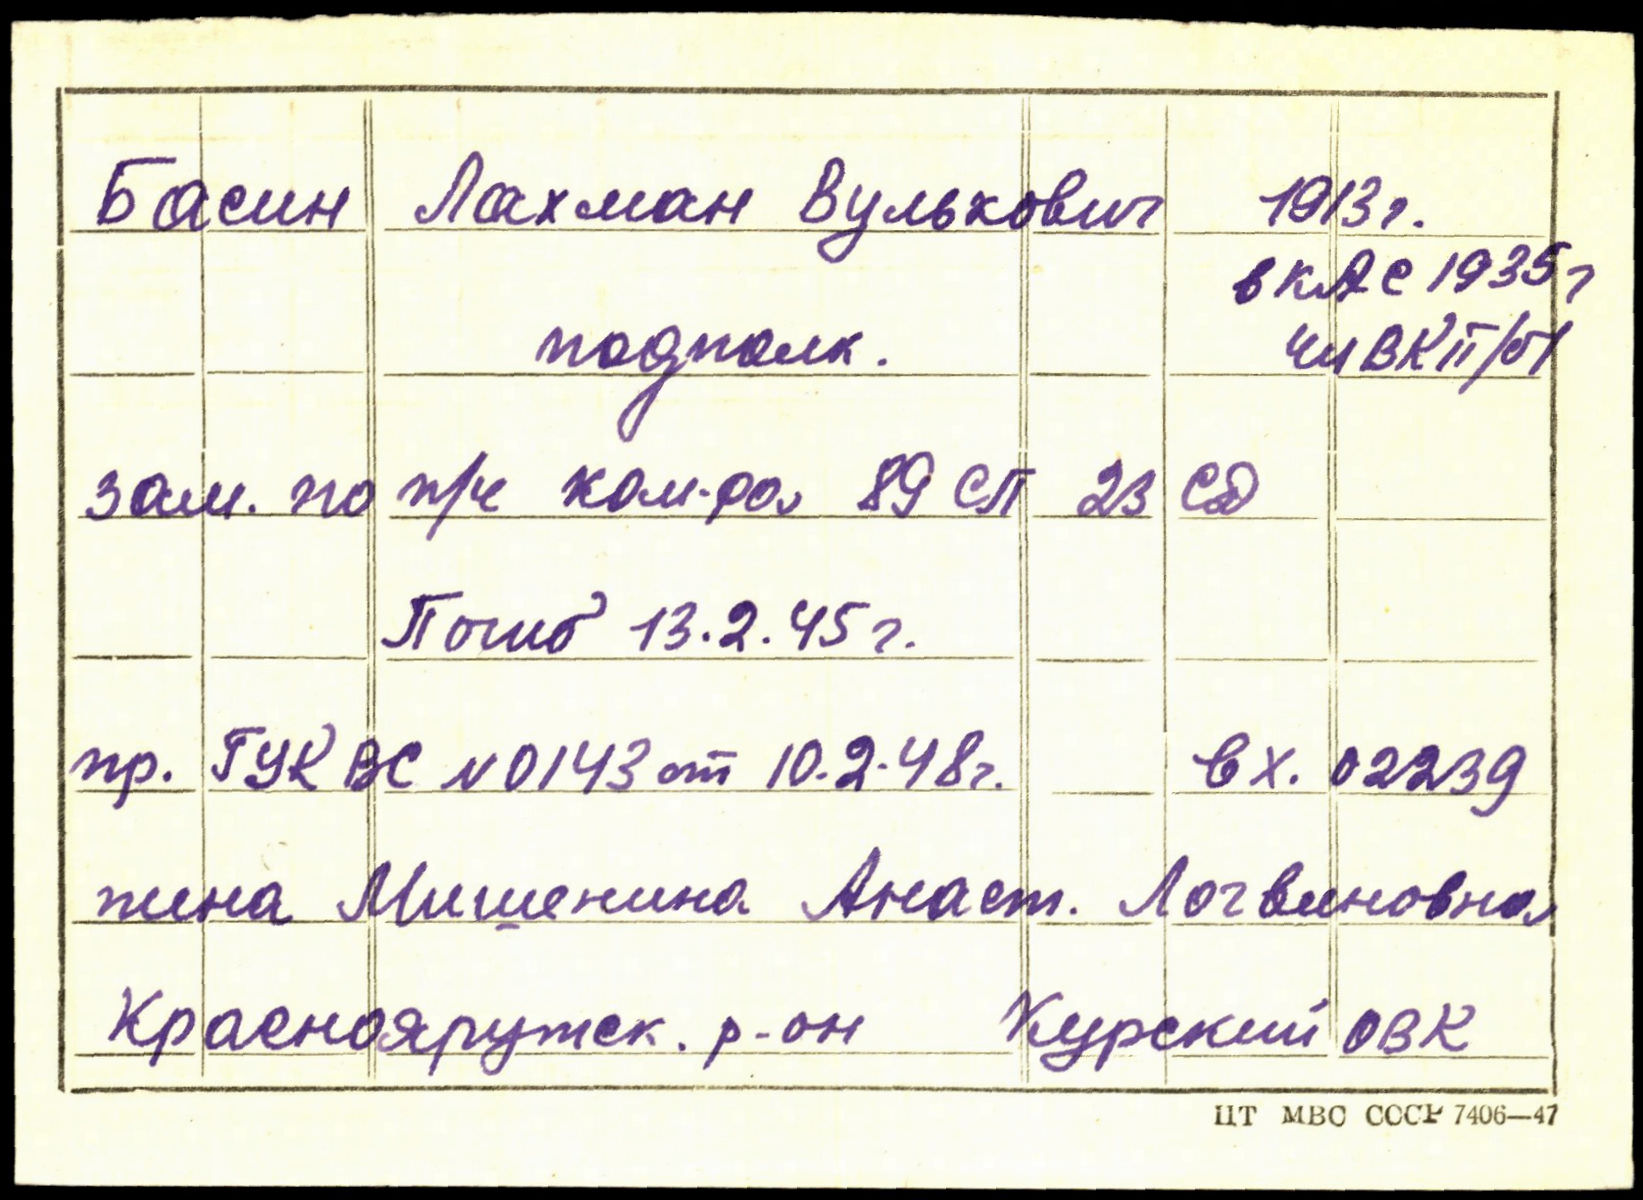 Басин Лахман Вульхович 1913 г.
в кАС 1935 г
подполк.
чл ВКП/б/
зам. по п/ч ком-ра 89 СП 23 СД
Погиб 13.2.45 г.
пр. ГУК ВС N 0143 от 10.2.48 г. Вх. 02239
жена Мишенина Анаст. Логвиновна
Краснояружск. р-он Курский ОВК
ЦТ МВС СССР 7406—47